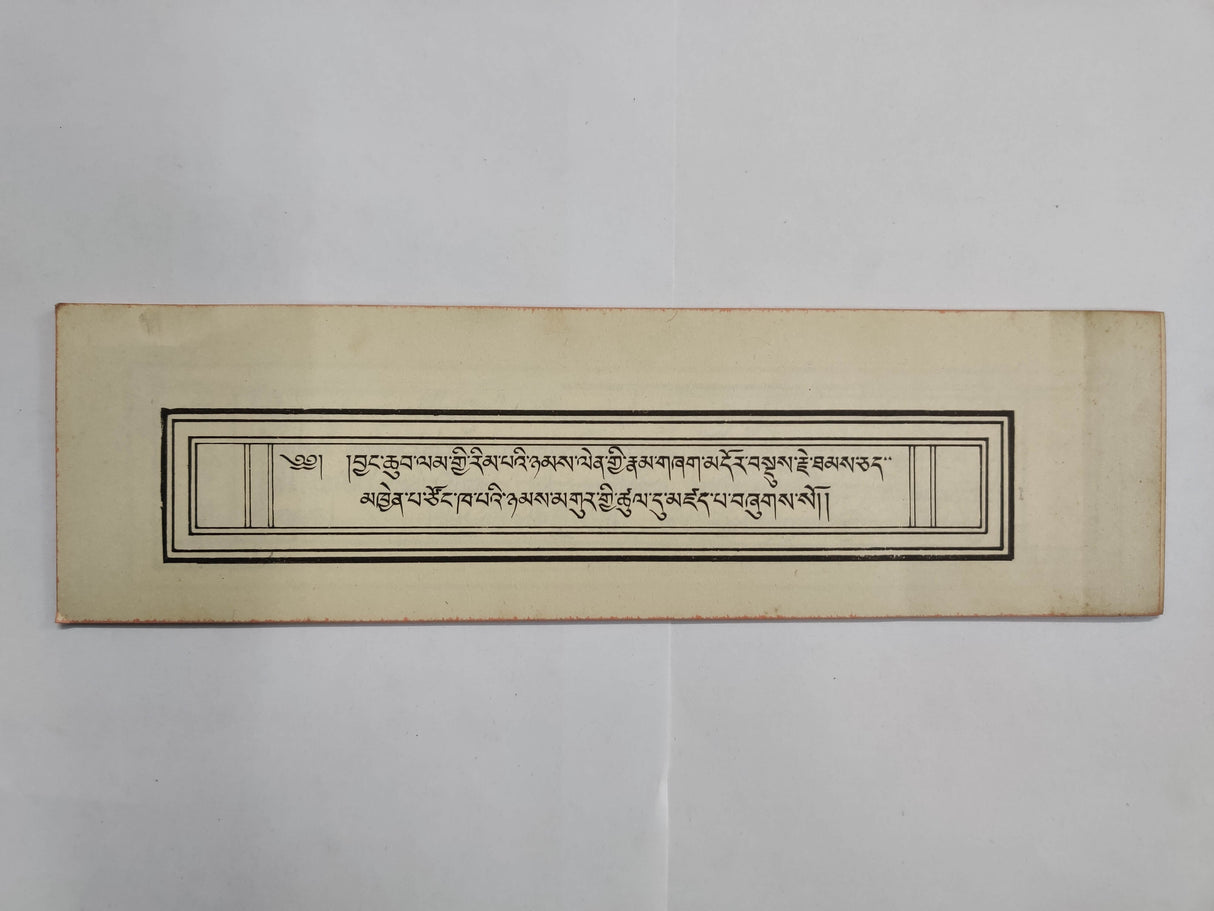 ༄༅། །བྱང་ཆུབ་ལམ་གྱི་རིམ་པའི་ཉམས་ལེན་གྱི་རྣམ་གཞག་མདོར་བསྡུས་རྗེ་ཐམས་ཅད་
མཁྱེན་པ་ཙོང་ཁ་པའི་ཉམས་མགུར་གྱི་ཚུལ་དུ་མཛད་པ་བཞུགས་སོ།།